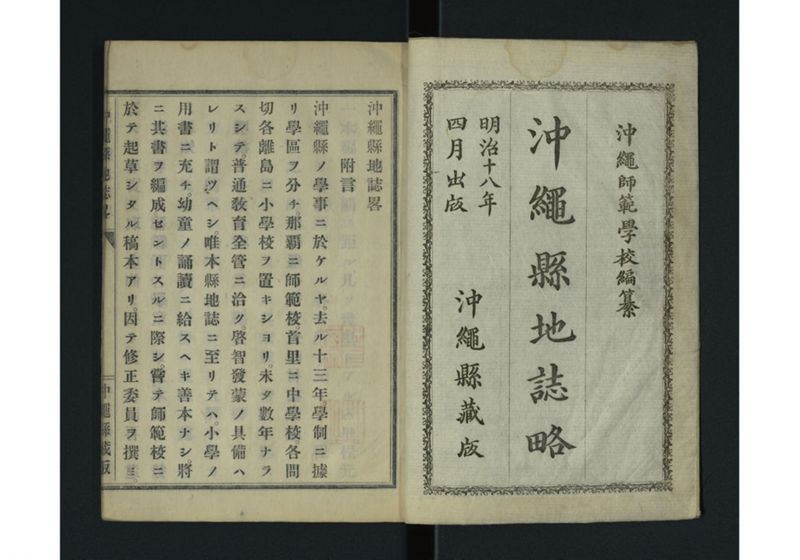 沖繩師範學校編纂
沖繩縣地誌略
明治十八年
四月出版
沖繩縣藏版
沖繩縣地誌畧
附言
沖繩縣ノ學事ニ於ケルヤ。去ル十三年學制ニ據
リ學區ヲ分チ。那覇ニ師範校。首里ニ中學校各間
切各離島ニ小學校ヲ置キショリ。未タ數年ナラ
スシテ普通敎育全管ニ洽ク。啓智發蒙ノ具備ハ
レリト謂ツヘシ。唯本縣地誌ニ至リテハ。小學ノ
用書ニ充チ。幼童ノ誦讀ニ給スヘキ善本ナシ。將
ニ其書ヲ編成セントスルニ際シ。嘗テ師範校ニ
於テ起草シタル稿本アリ。因テ修正委員ヲ撰ミ。
沖繩縣地誌畧
沖繩縣藏版